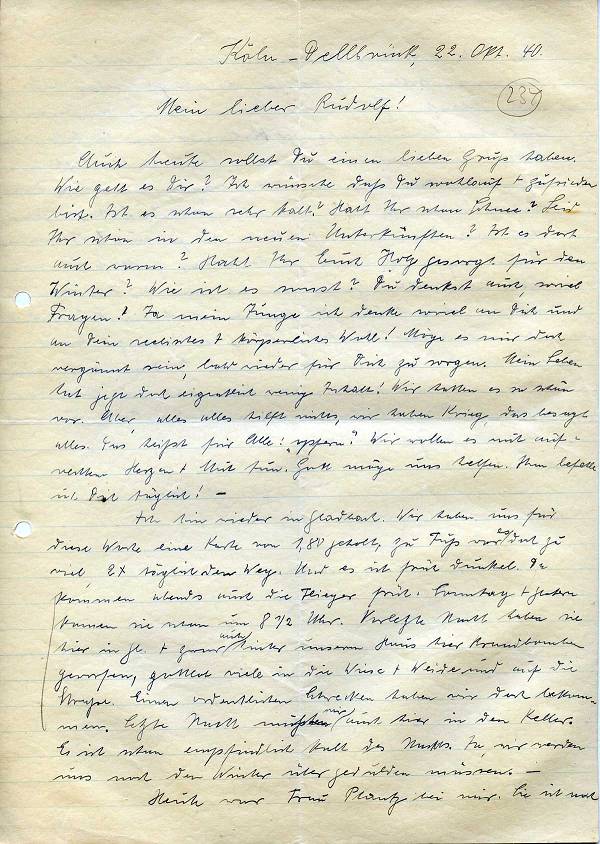 Köln-Dellbrück, 22. Okt. 40.
237
Mein lieber Rudolf!
Auch heute sollst Du einen lieben Gruß haben.
Wie geht es Dir? Ich wünsche daß Du wohlauf + zufrieden
bist. Ist es schon sehr kalt? Habt Ihr schon Schnee? Seid
Ihr schon in den neuen Unterkünften? Ist es dort
auch warm? Habt Ihr Euch Holz gesorgt für den
Winter? Wie ist es sonst? Du denkst auch, soviel
Fragen? Ja mein Junge ich denke soviel an Dich und
an Dein seelisches + körperliches Wohl! Möge es mir doch
vergönnt sein, bald wieder für Dich zu sorgen. Mein Leben
hat jetzt doch eigentlich wenig Inhalt! Wir hatten es so schön
vor. Aber, alles alles hilft nichts, wir haben Krieg, das besagt
alles. Das heißt für Alle: "opfern"! Wir wollen es mit auf-
rechten Herzen + Mut tun. Gott möge uns helfen. Ihm befehle
ich Dich täglich! –
Ich bin wieder in Gladbach. Wir haben uns für
diese Woche eine Karte von 1,80 geholt, zu Fuß wurd doch zu
viel, 2x täglich den Weg. Und es ist früh dunkel. Da
kommen abends auch die Flieger früh. Sonntag + gestern
kamen sie schon um 8 1/2 Uhr. Vorletzte Nacht haben sie
hier in Gl. + zwar auch hinter unserm Haus hier Brandbomben
geworfen, gottlob viele in die Wiese + Weide und auf die
Straße. Einen ordentlichen Schrecken haben wir doch bekom-
men. Letzte Nacht mußten wir auch hier in den Keller.
Es ist schon empfindlich kalt des Nachts. Ja, wir werden
uns noch den Winter über gedulden müssen. –
Heute war Frau Plantz bei mir. Sie ist noch